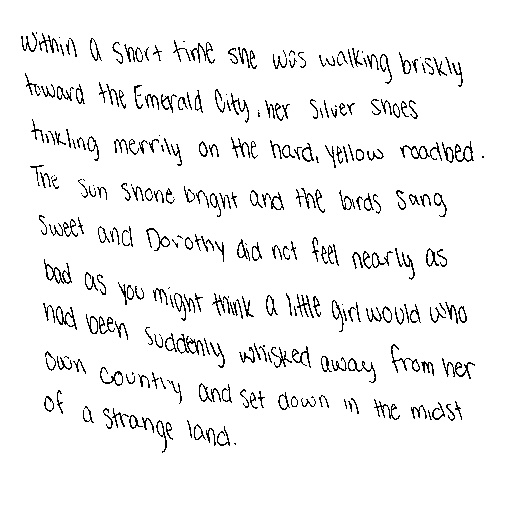 Within a short time she was walking briskly
toward the Emerald City, her silver shoes
tinkling merrily on the hard, yellow roadbed.
The sun shone bright and the birds sang
sweet and Dorothy did not feel nearly as
bad as you might think a little girl would who
had been suddenly whisked away from her
own country and set down in the midst
of a strange land.